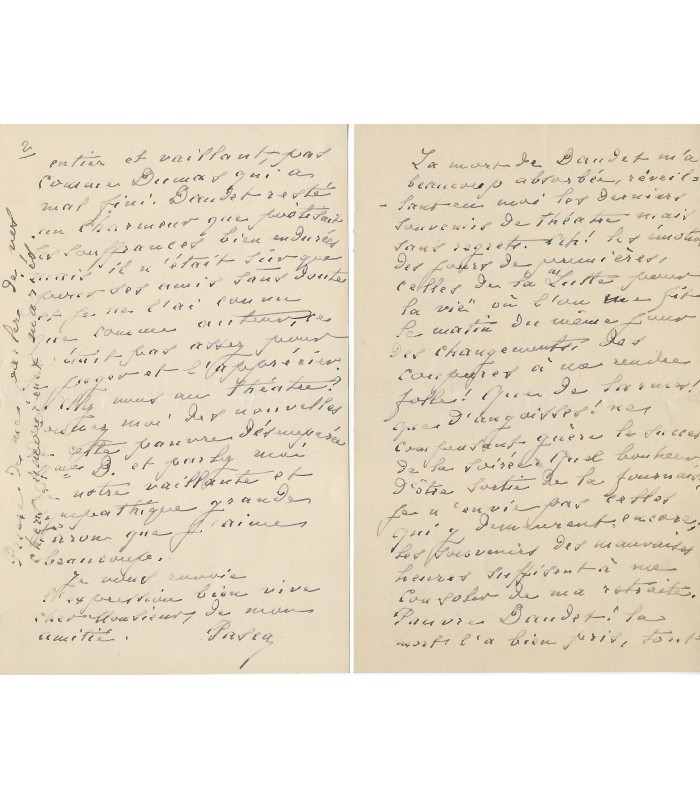 La mort de Daudet m'a
beaucoup absorbée, réveil-
-lant en moi les derniers
souvenirs de théatre mais
sans regrets. Ah! les émotions
des jours de premières,
celles de la "Lutte pour
la vie" où l'on me fit
le matin du même jour
des changements, des
coupures à me rendre
folle! Que de larmes!
que d'angoisses! ne
compensant guère le succès
de la soirée. Quel bonheur
d'être sortie de la fournaise
je n'envie pas celles
qui y demeurent encore.
Les souvenirs des mauvaises
heures suffisent à me
consoler de ma retraite.
Pauvre Daudet! la
mort l'a bien pris, tout
2/
entier et vaillant, pas
comme Dumas qui a
mal fini. Daudet resté
un charmeur que poétisait
les souffrances bien endurées
mais il n'était sûr que
pour ses amis sans doute
et je ne l'ai connu
que comme auteur, ce
n'était pas assez pour
juger et l'apprécier.
vous au théatre?
moi des nouvelles
cette pauvre désemparée
D. et parlez moi
notre vaillante et
sympathique grande
baronne que j'aime
beaucoup.
Je vous envoie
l'expression bien vive
cher Monsieur, de mon
amitié. Pasca
de mes de vos